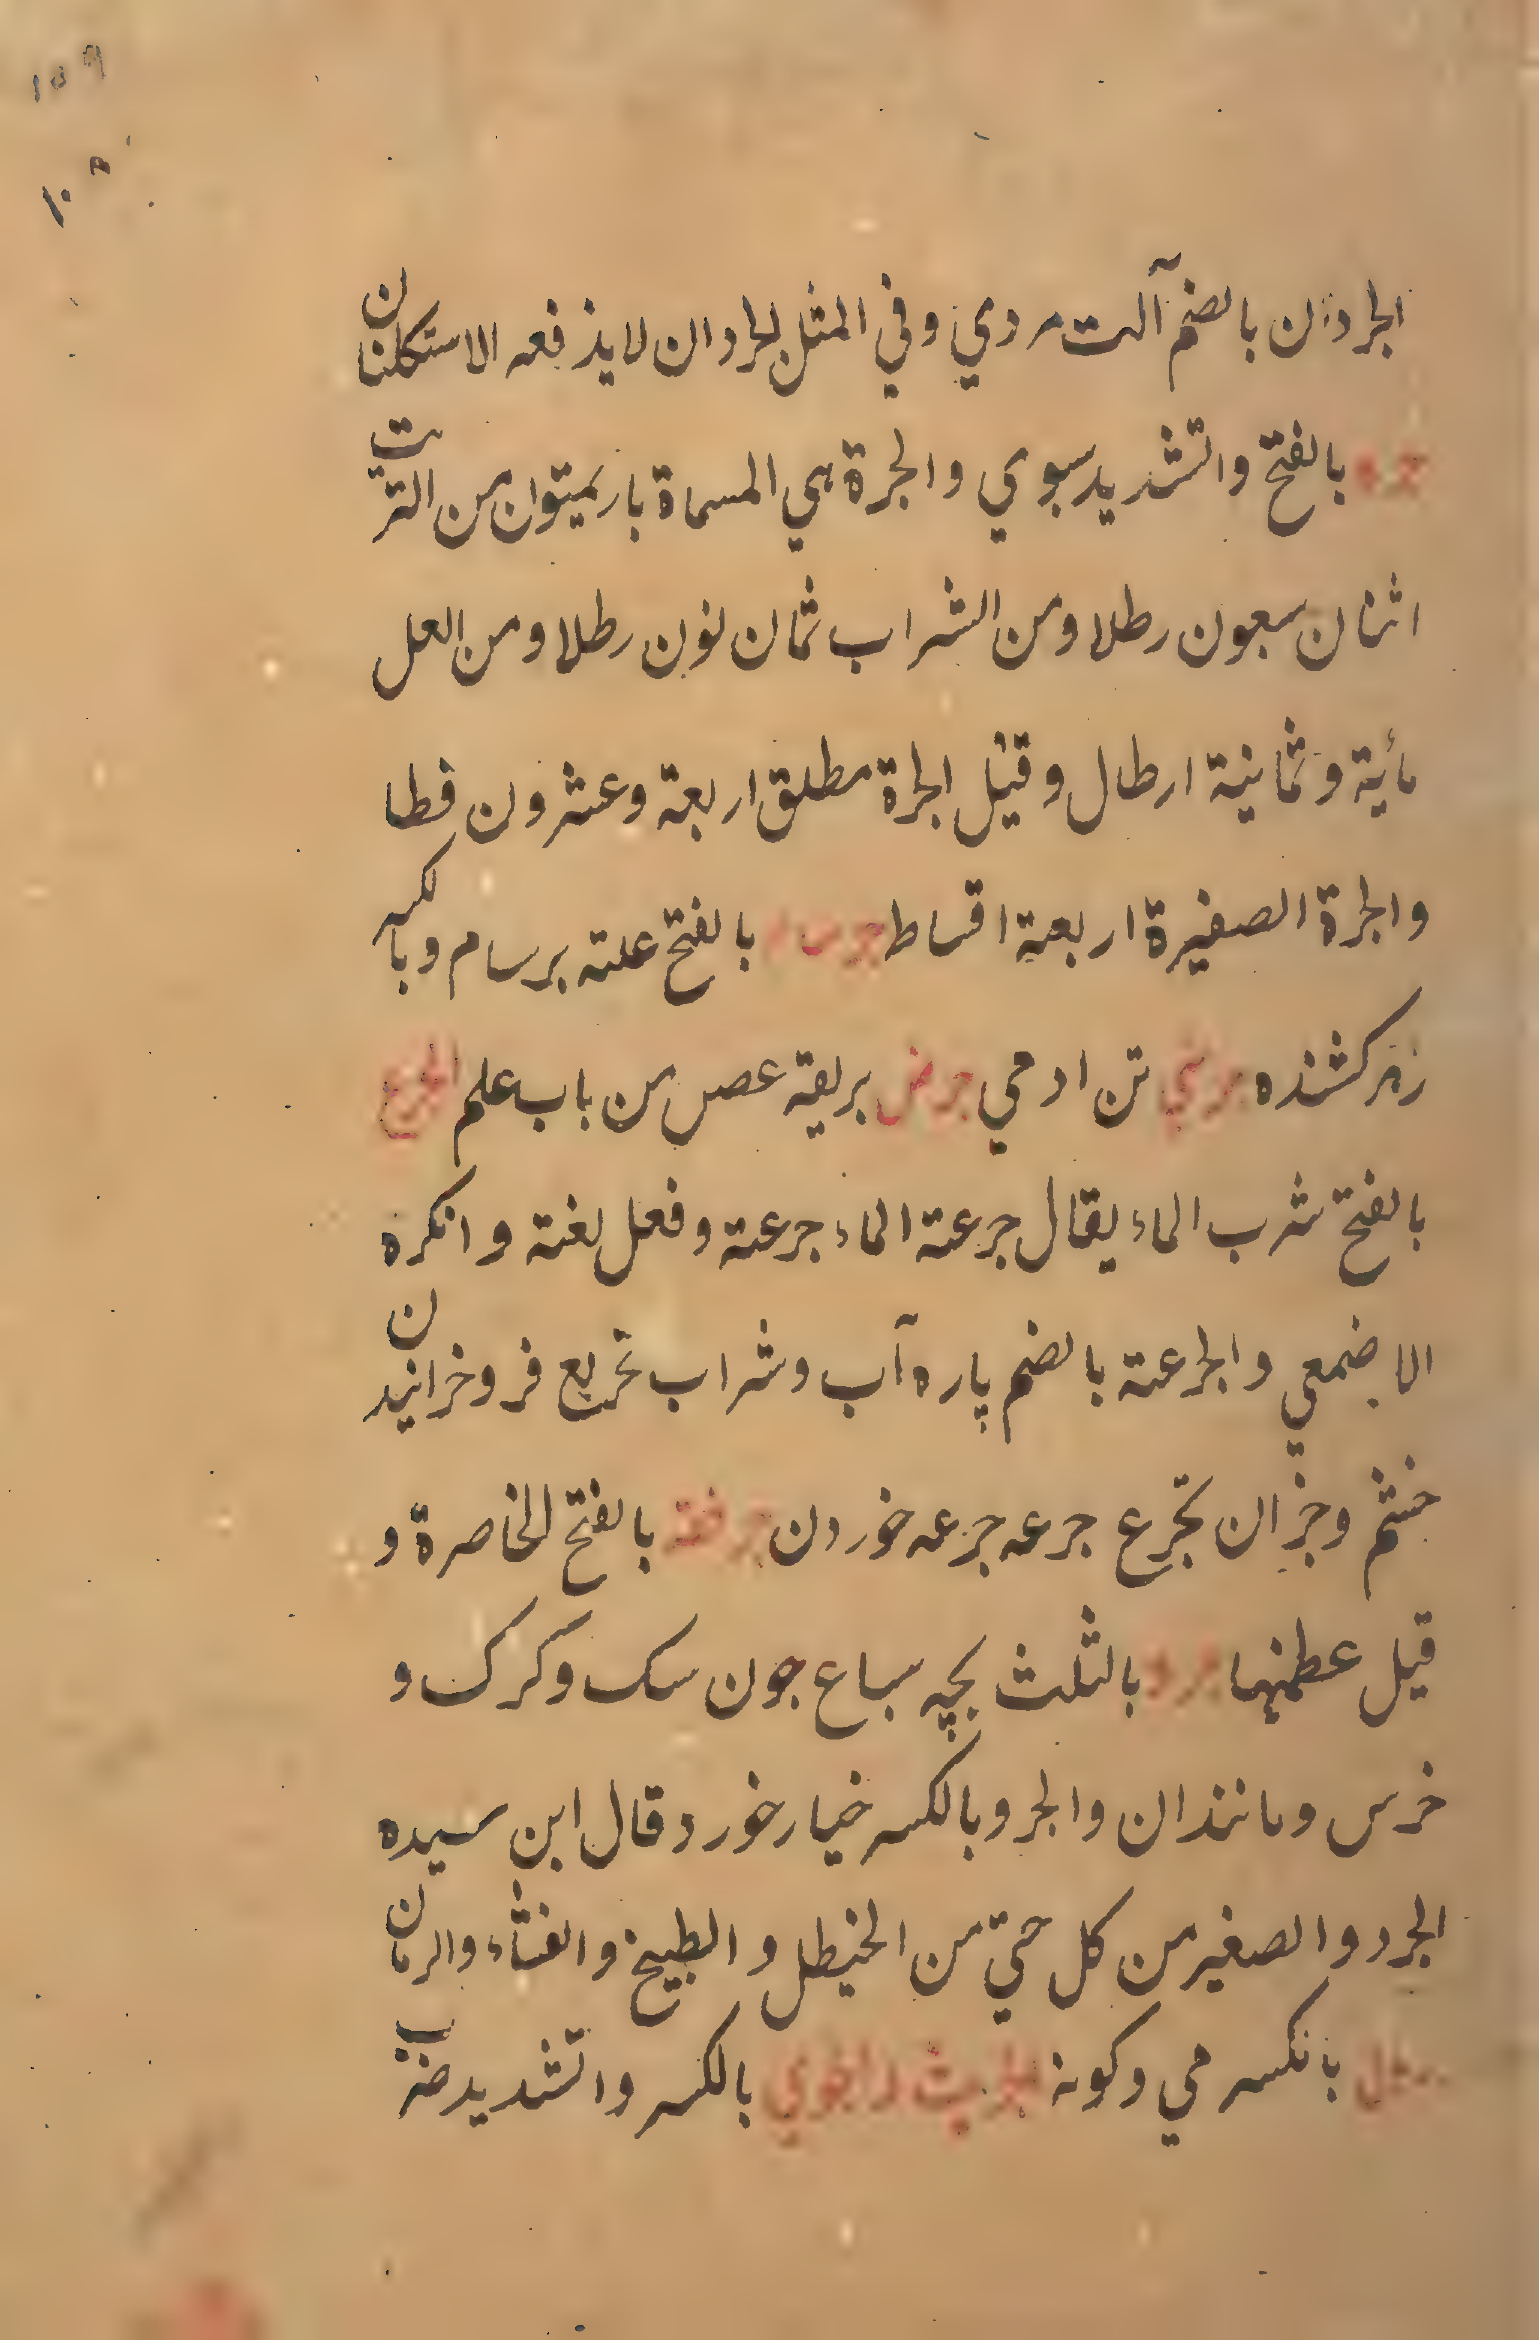 ١٥٩
١٠٨
الجردان بالضم آلت مردي وفي المثل لجردان لا يذفعه الا استكلنان
جره بالفتح واتشديد سبوي والجرة هي المسماة بارميتون من الترت
اثنان سعون رطلا ومن الشراب ثمان نون رطلا ومن العل
مأية وثمانية ارطال وقيل الجرة مطلق اربعة وعشرون قطا
والجرة الصغيرة اربعة اقساط جرسام بالفتح علته برسام وبالكسر
زهر كشنده جرمي تن ادمي جرض بريقة عصص من باب علم الجرع
بالفتح شرب الماء يقال جرعة الماء جرعة وفعل لغة وانكره
الاضمعي والجرعة بالضم پاره آب وشراب تجريع فروخرانيدن
خشم وجزان تجرع جرعه جرعه خوردن جرفة بالفتح الخاصرة و
قيل عطمنها جرو بالثلث بچه سباع جون سك وكرك و
خرس ومانندان والجرو بالكسر خيار خورد قال ابن سيده
الجرد والصغير من كل حيّ من الخيطل والطبيخ والقثاء والرمان
بالكسر مي وكونه الجريث والجري بالكسر واتشديد ضرب